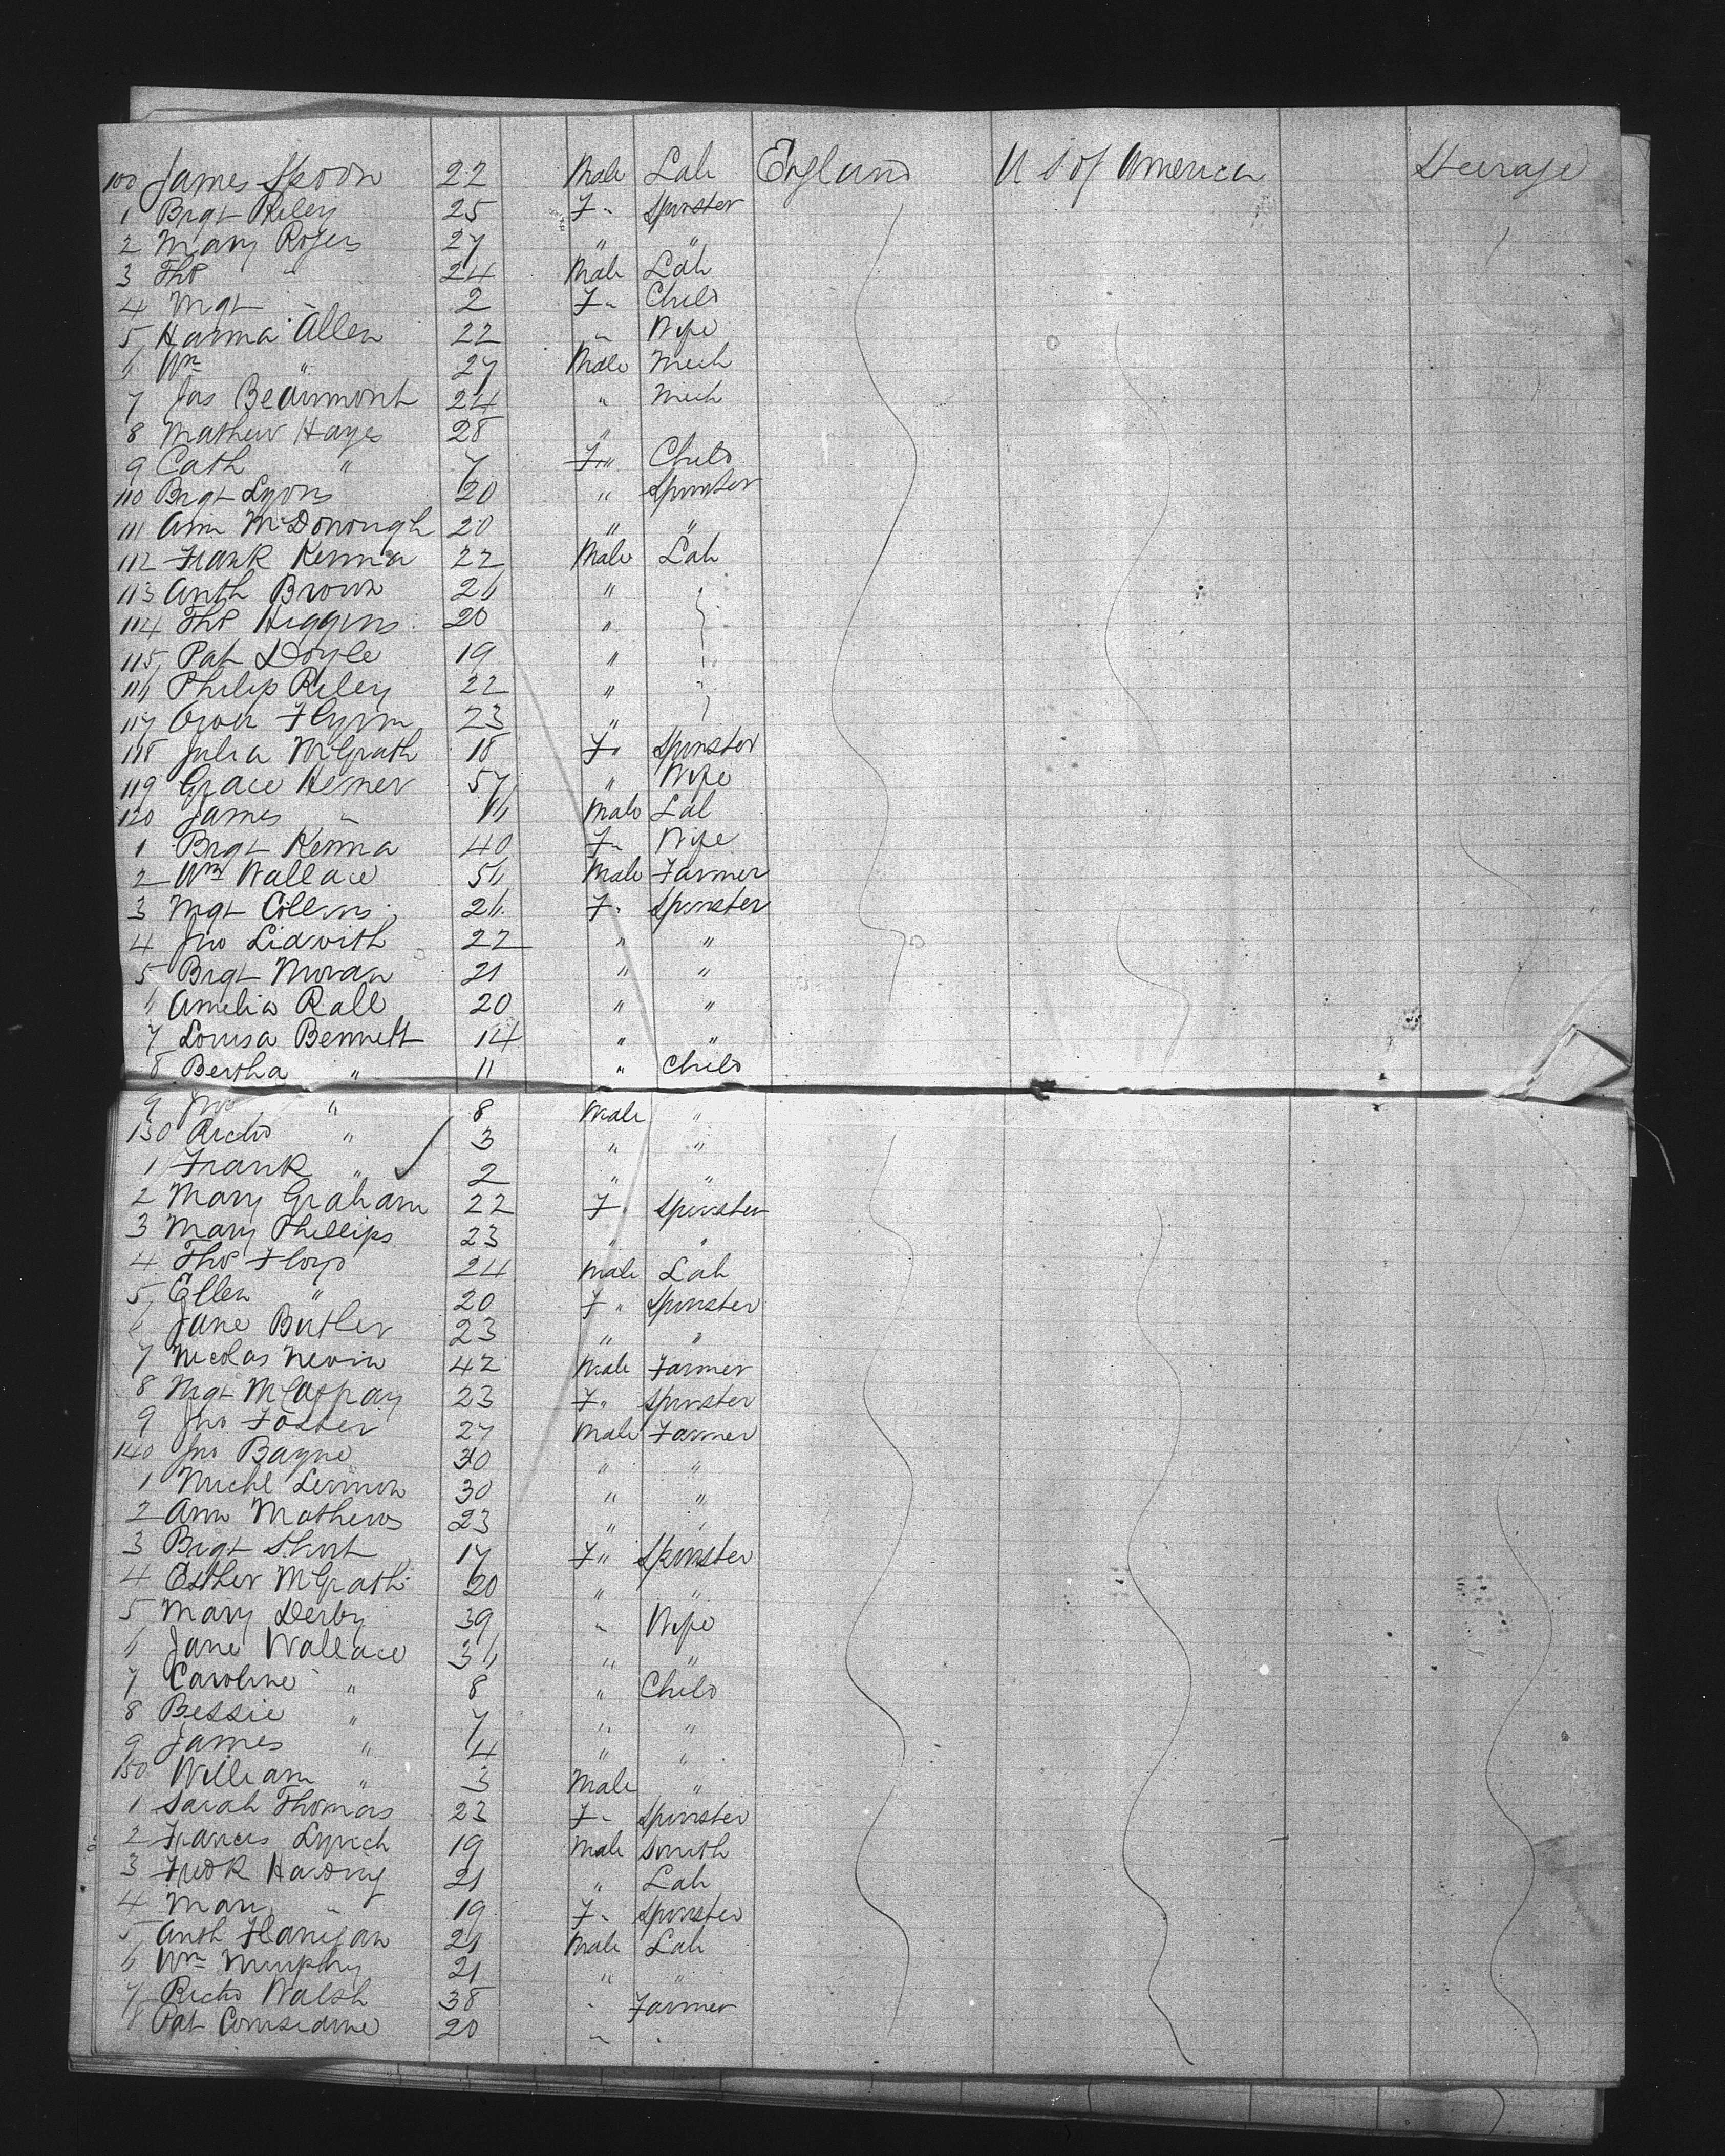 100 James Skoon 22 Male Lab England U S of America Steerage
1 Brgt Riley 25 F " Spinster
2 Mary Rogers 27 " "
3 Thos " 24 Male Lab
4 Mgt " 2 F " Child
5 Hanna Allen 22 " Wife
6 Wm " 27 Male Mech
7 Jas Beaumont 24 " Mech
8 Mathew Hayes 28 "
9 Cath " 7 F " Child
110 Brgt Lyons 20 " Spinster
111 Ann McDonough 20 " "
112 Frank Kenna 22 Male Lab
113 Anth Brown 26 "
114 Thos Higgins 20 "
115 Pat Doyle 19 " "
116 Philip Riley 22 " "
117 Owen Flynn 23 "
118 Julia McGrath 18 F " Spinster
119 Grace Hesner 57 " Wife
120 James " 16 Male Lab
1 Brgt Kenna 40 F " Wife
2 Wm Wallace 56 Male Farmer
3 Mgt Collins 26 F " Spinster
4 Jno Lidwith 22 " "
5 Brgt Moran 21 " "
6 Amelia Rall 20 " "
7 Louisa Bennett 14 " "
8 Bertha " 11 " Child
9 Jno " 8 Male "
130 Richd " 3 " "
1 Frank " 2 " "
2 Mary Graham 22 F " Spinster
3 Mary Phillips 23 " "
4 Thos Floyd 24 Male Lab
5 Ellen " 20 F " Spinster
6 Jane Butler 23 " "
7 Nicolas Nevin 42 Male Farmer
8 Mgt 23 F " Spinster
9 Jno Foster 27 Male Farmer
140 Jno Bayne 30 " "
1 Michl Lennon 30 " "
2 Ann Mathews 23 " "
3 Brgt Short 17 F " Spinster
4 Esther McGrath 20 " "
5 Mary Derby 39 " Wife
6 Jane Wallace 36 " "
7 Caroline " 8 " Child
8 Bessie " 7 " "
9 James " 4 " "
150 William " 3 Male "
1 Sarah Thomas 23 F " Spinster
2 Francis Lynch 19 Male Smith
3 Fredk Harding 21 " Lab
4 Mary " 19 F " Spinster
5 Anth Flanigan 21 Male Lab
6 Wm Murphy 21 " "
7 Richd Walsh 38 " Farmer
8 Pat Considine 20 " "